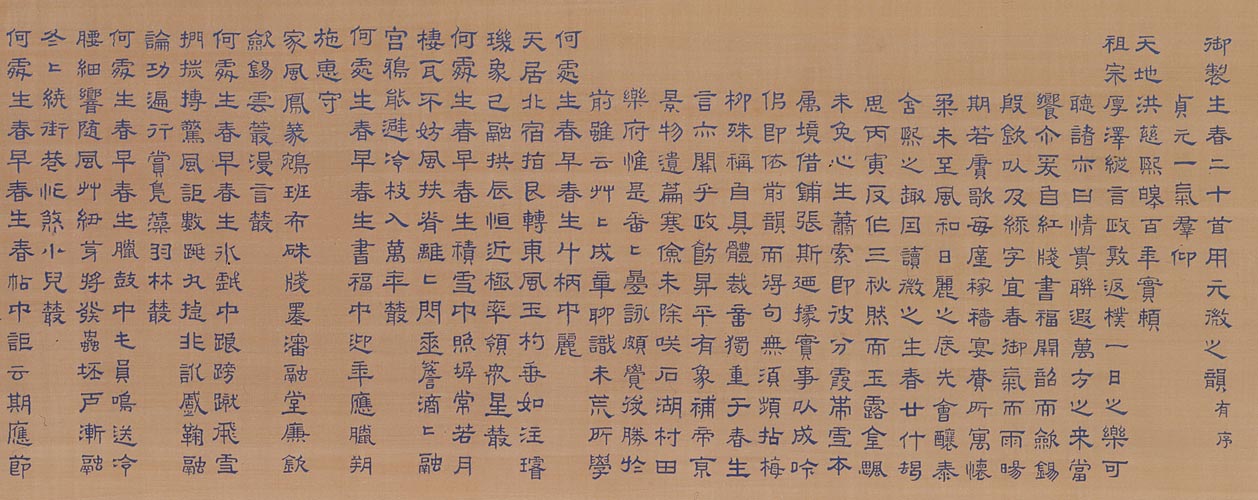 御製生春二十首用元微之韻有序
貞元一氣羣仰
天地洪慈熙皞百年實賴
祖宗厚澤縱言政敦返樸一日之樂可
聽諸亦曰情貴聯遐萬方之來當
饗亦爰自紅牋書福開韶而歛錫
殷歛以及綵字宜春御氣而雨暘
期若賡歌每廑稼穡宴賚所寓懷
柔未至風和日麗之辰先會釀泰
含熙之趣因讀微之生春廿什朅
思丙寅反作三秋然而玉露金飈
未免心生蕭索即彼分霞蒂雪本
屬境借鋪張斯迺據實事以成吟
仍即依前韻而得句無須頻拈梅
柳殊稱自具體裁音獨重于春生
言亦關乎政飭昇平有象補帝京
景物遺篇寒儉未除咲石湖村田
樂府惟是番〻疊詠頗覺後勝於
前雖云艸〻成章聊識未荒所學
何處生春早春生斗柄中麗
天居北宿指艮轉東風玉杓垂如注璿
璣象已融拱辰恒近極率領眾星叢
何處生春早春生積雪中照墀常若月
棲瓦不妨風扶脊離〻閃垂簷滴〻融
宮鴉能避冷枝入萬年叢
何處生春早春生書福中迎年應臘朔
施惠守
家風鳳篆鵷班布硃牋墨瀋融堂廉欽
歛錫雲叢漫言叢
何處生春早春生氷戲中踉蹡蹴飛雪
捫掞摶驚風詎數跳丸捷非訛蹙鞠融
論功遍行賞鳧藻羽林叢
何處生春早春生臘鼓中員鳴送冷
腰細響隨風艸紐芽將發蟲坯戶漸融
冬〻統街巷忙煞小兒叢
何處生春早春生春帖中詎云期應節